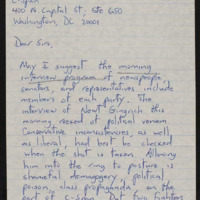 C-Span
400 N. Capital St. Ste 650
Washington, DC 20001
Dear Sirs,
May I suggest the morning
interview program of newspeople,
senators, and representatives include
members of each party. The
interview of Newt Gingrich this
morning reeked of political venom
Conservative inconsistencies, as well
as liberal, had best be checked
when the shot is taken. Allowing
him into the ring to posture is
shameful demagogery, political
poison, class propaganda on the
part of C-Span. Put two fighters